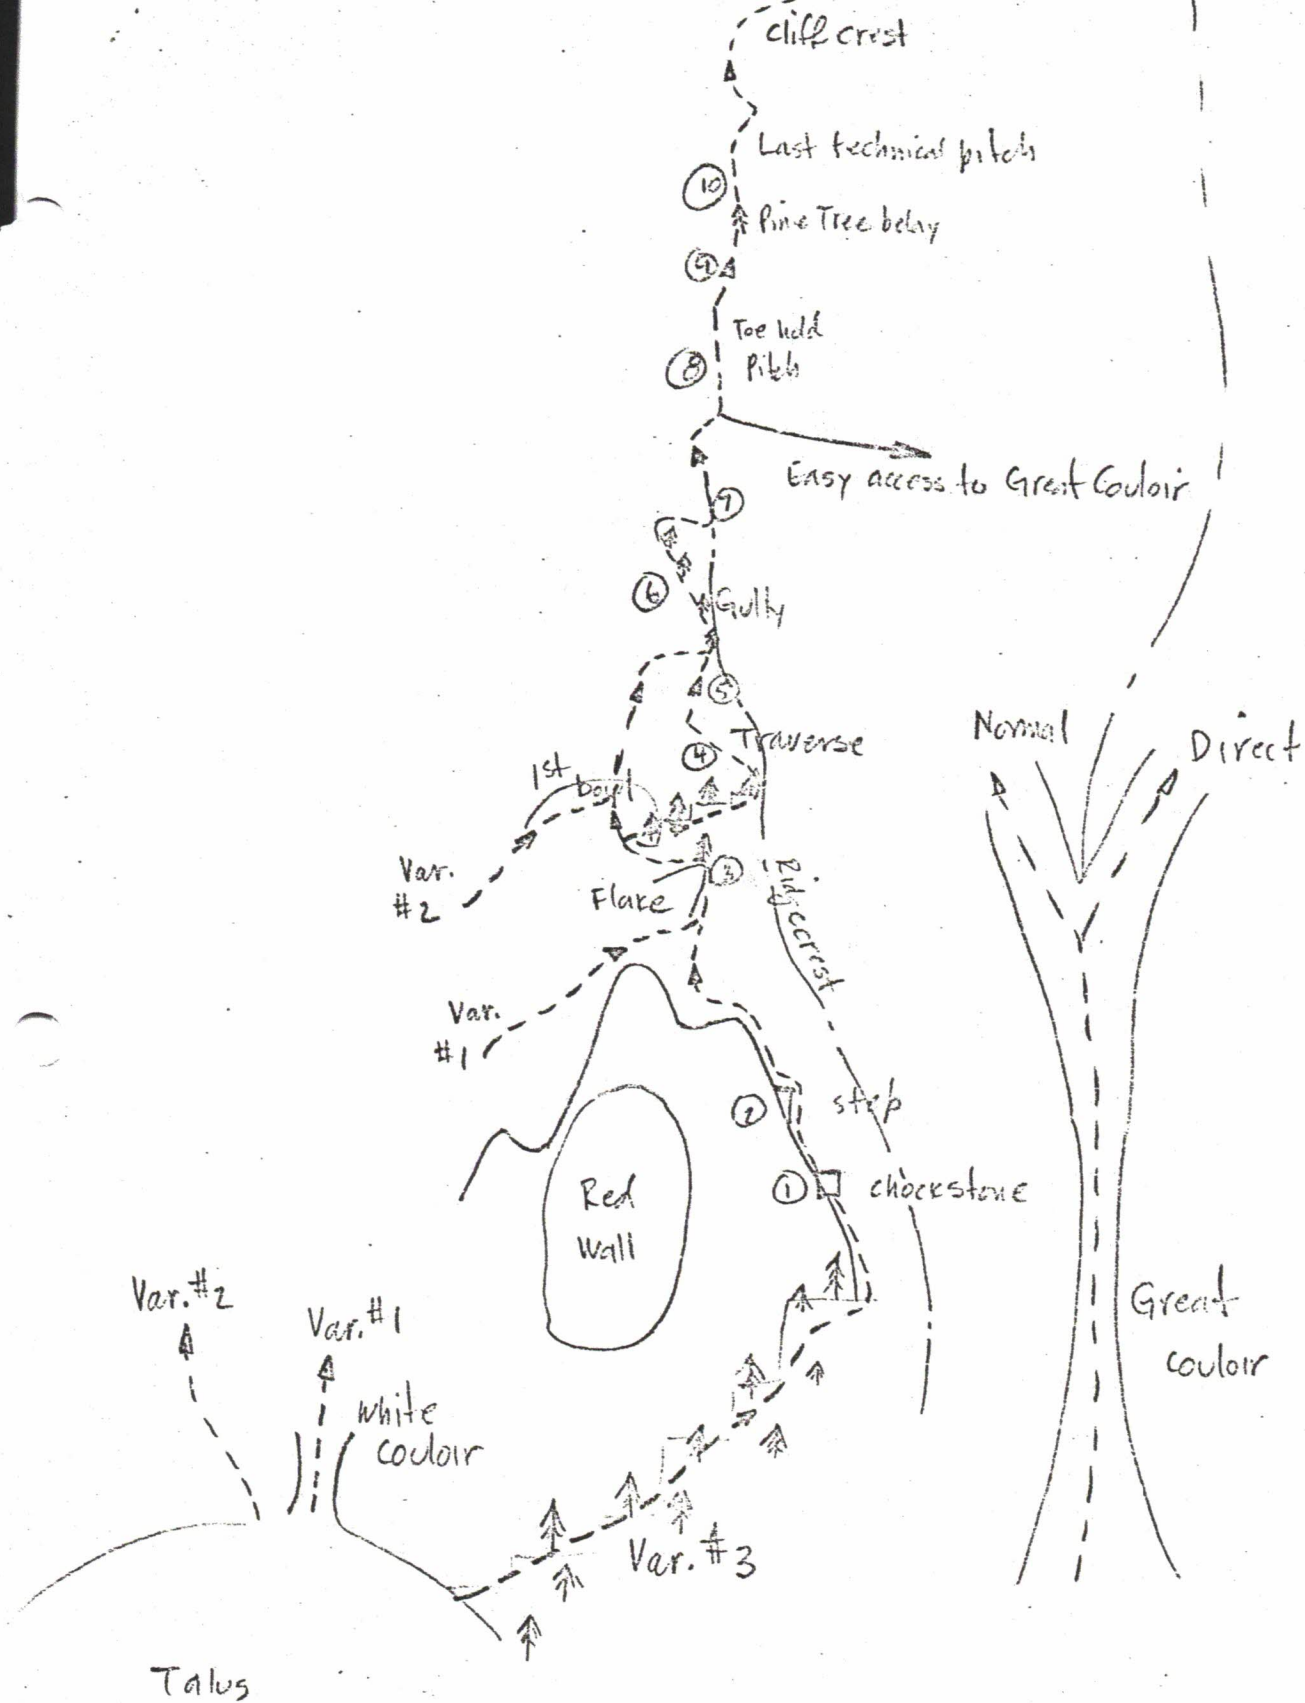 cliff crest
Last technical pitch
10
Pine Tree belay
9
Toe hold
Pitch
8
Easy access to Great Couloir
7
6
Gully
5
Traverse
4
Normal
Direct
1st bowl
Var.
#2
3
Flake
Ridgecrest
Var.
#1
2
step
1
chockstone
Red
Wall
Var. #2
Var. #1
White
Couloir
Great
Couloir
Var. #3
Talus